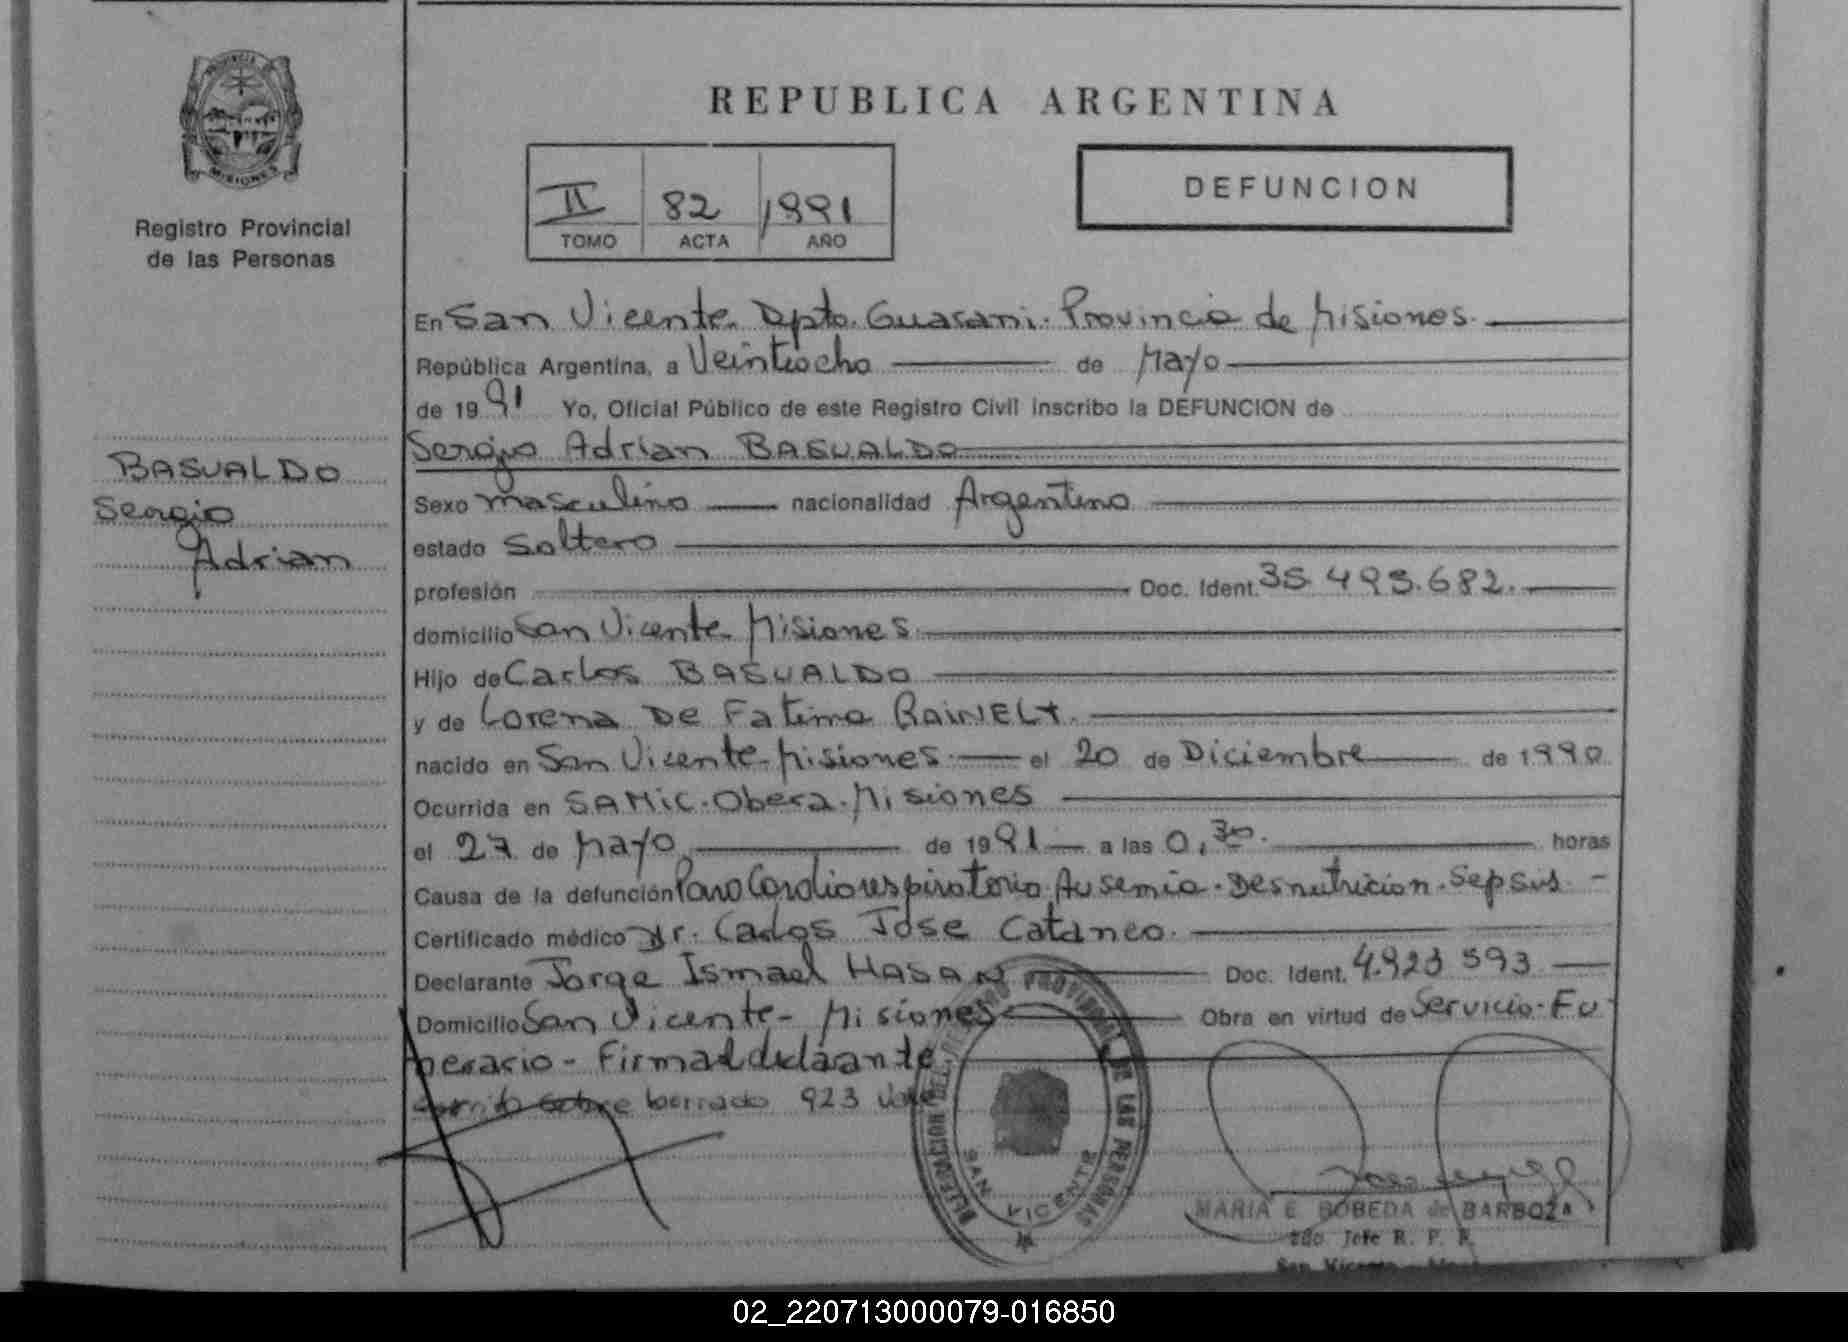 PROVINCIA DE
MISIONES
Registro Provincial
de las Personas
BASUALDO
Sergio
Adrian
REPUBLICA ARGENTINA
II 82 1991
TOMO ACTA AÑO
DEFUNCION
En San Vicente Dpto. Guarani. Provincia de Misiones.
República Argentina, a Veintiocho de Mayo
de 1991 Yo, Oficial Público de este Registro Civil inscribo la DEFUNCION de
Sergio Adrian BASUALDO
Sexo masculino nacionalidad Argentino
estado Soltero
profesión Doc. Ident. 35.495.682.
domicilio San Vicente Misiones
Hijo de Carlos BASUALDO
y de Lorena De Fatima RAINELT.
nacido en San Vicente-Misiones el 20 de Diciembre de 1990
Ocurrida en SAMIC. Obera. Misiones
el 27 de Mayo de 1991 a las 0,30. horas
Causa de la defunción Paro Cardiorespiratorio. Desnutricion. Sepsis. -
Certificado médico Dr. Carlos Jose Cataneo.
Declarante Jorge Ismael HASAN Doc. Ident. 4.923 593
Domicilio San Vicente - Misiones Obra en virtud de Servicio-Fu
nerario - Firma el declarante
sobre borrado 923 vale
DELEGACION DEL REGISTRO PROVINCIAL DE LAS PERSONAS
SAN VICENTE
MARIA E BOBEDA de BARBOZA
2do. Jefe R. P. P.
San Vicente
02_220713000079-016850